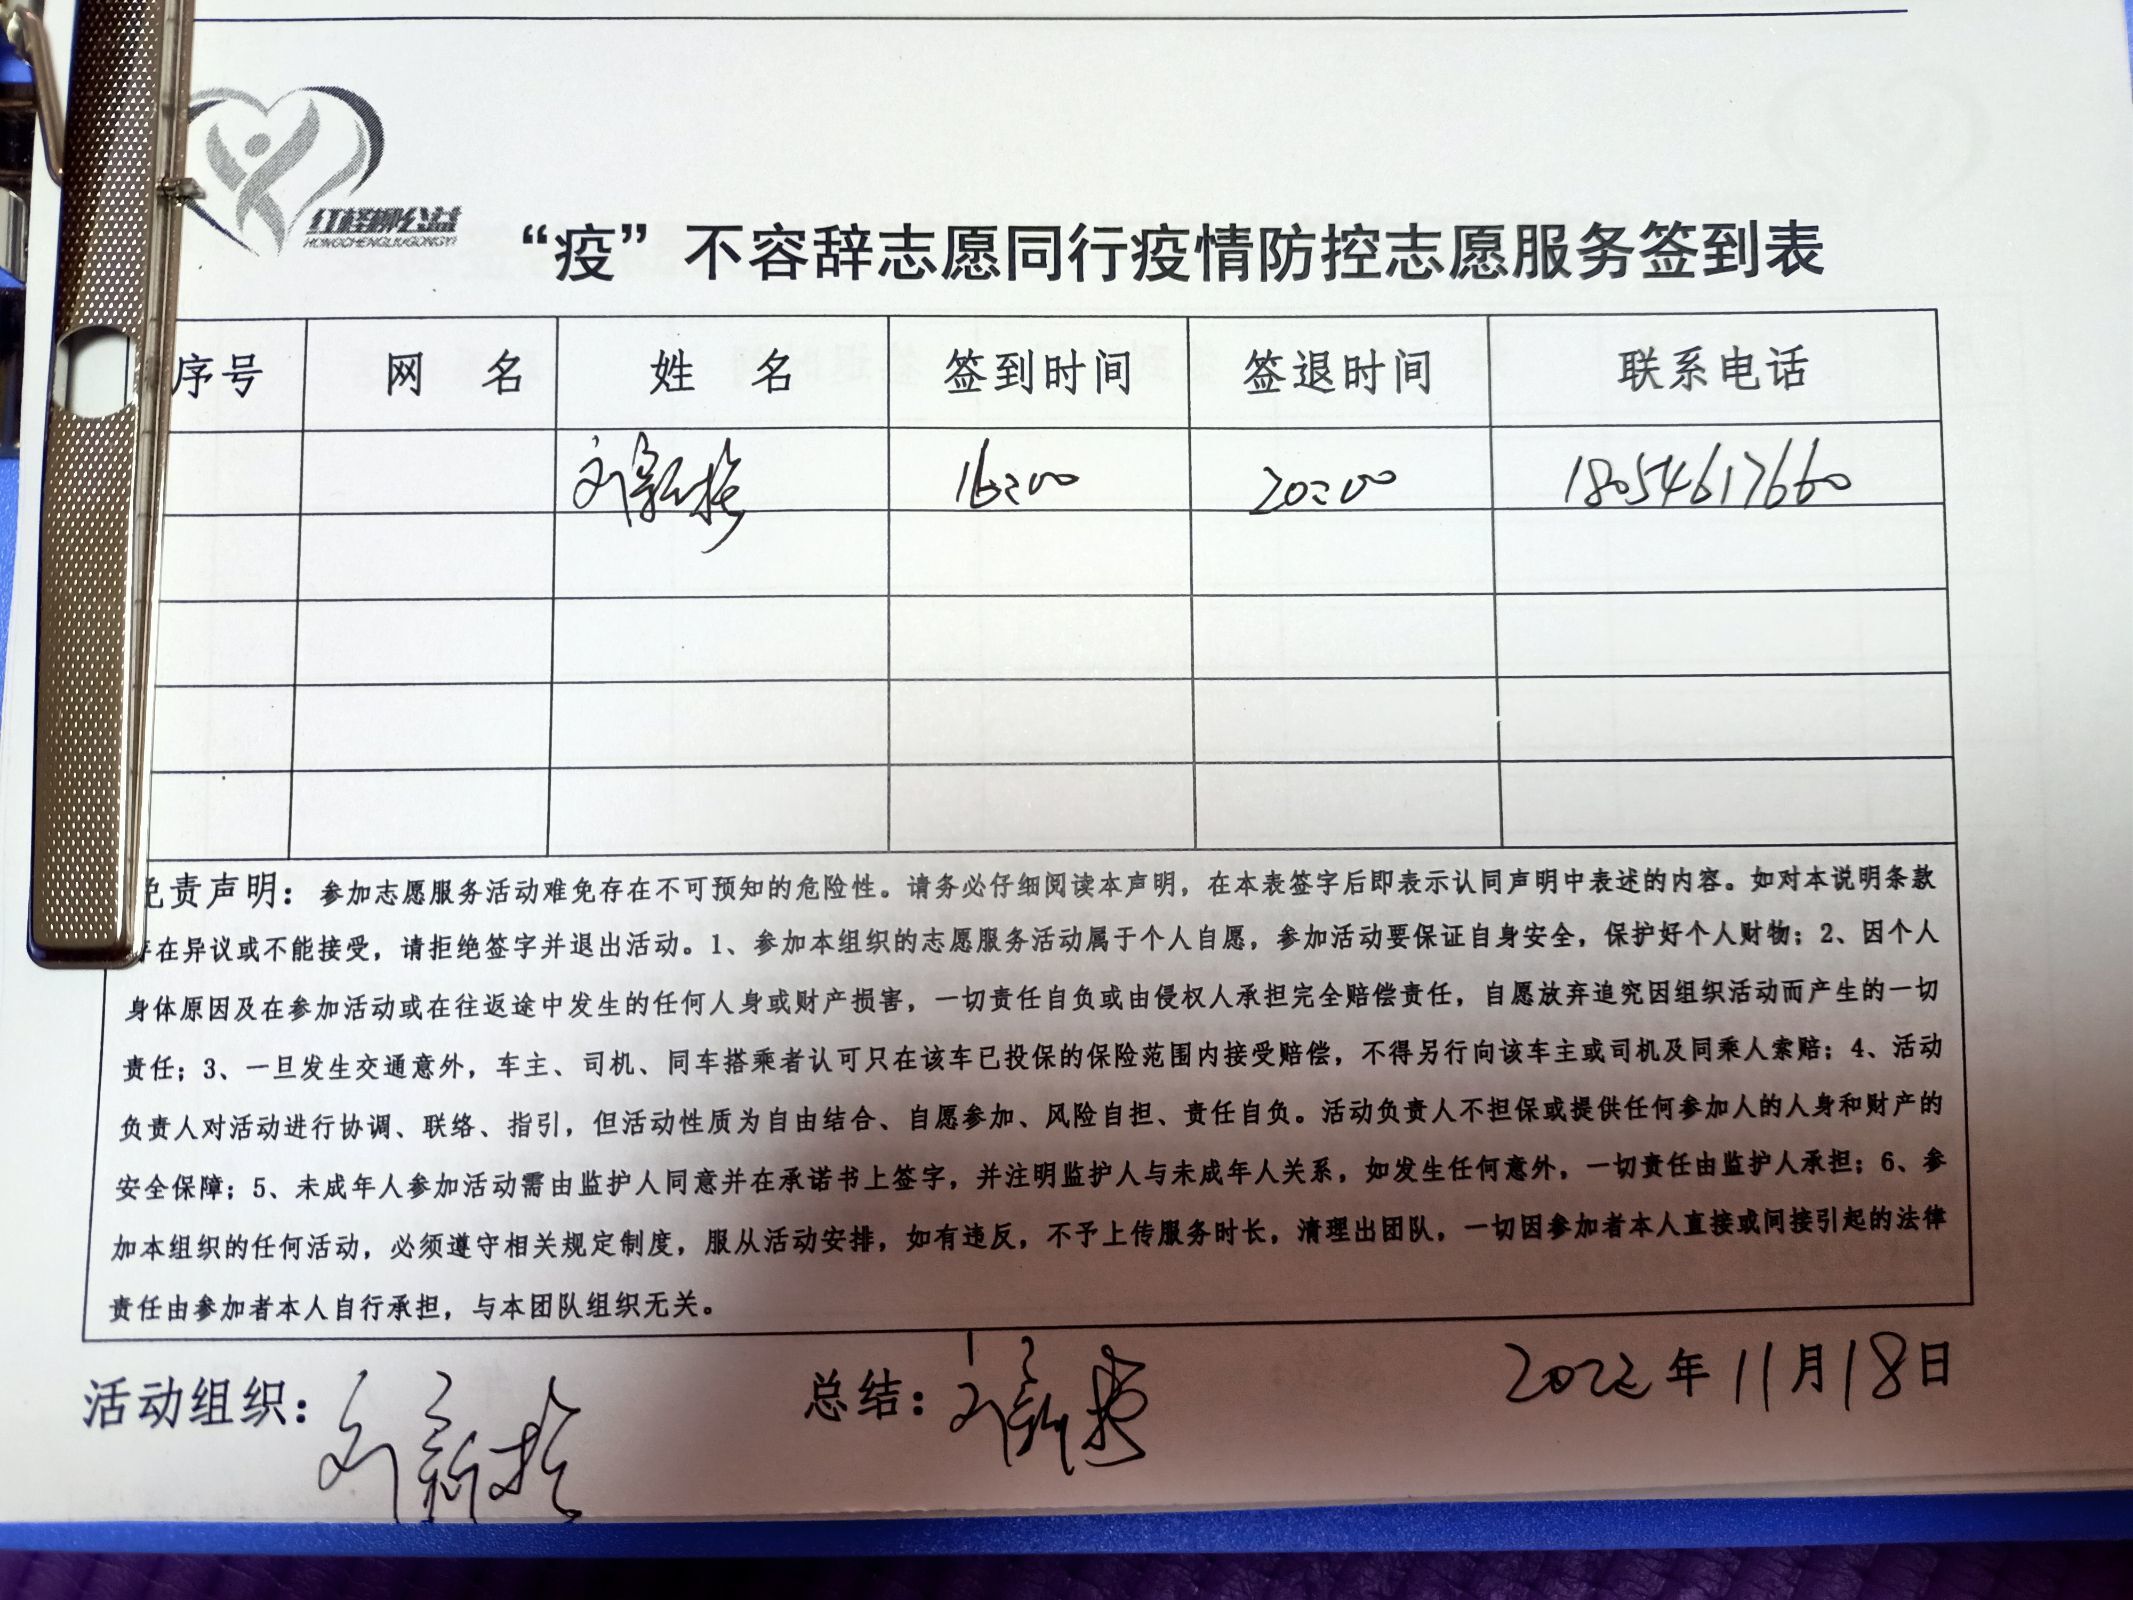 红柽柳公益
HONGCHENGLIUGONGYI
“疫”不容辞志愿同行疫情防控志愿服务签到表
序号 网 名 姓 名 签到时间 签退时间 联系电话
刘新 16:00 20:00 18054617660
免责声明：参加志愿服务活动难免存在不可预知的危险性。请务必仔细阅读本声明，在本表签字后即表示认同声明中表述的内容。如对本说明条款
存在异议或不能接受，请拒绝签字并退出活动。1、参加本组织的志愿服务活动属于个人自愿，参加活动要保证自身安全，保护好个人财物；2、因个人
身体原因及在参加活动或在往返途中发生的任何人身或财产损害，一切责任自负或由侵权人承担完全赔偿责任，自愿放弃追究因组织活动而产生的一切
责任；3、一旦发生交通意外，车主、司机、同车搭乘者认可只在该车已投保的保险范围内接受赔偿，不得另行向该车主或司机及同乘人索赔；4、活动
负责人对活动进行协调、联络、指引，但活动性质为自由结合、自愿参加、风险自担、责任自负。活动负责人不担保或提供任何参加人的人身和财产的
安全保障；5、未成年人参加活动需由监护人同意并在承诺书上签字，并注明监护人与未成年人关系，如发生任何意外，一切责任由监护人承担；6、参
加本组织的任何活动，必须遵守相关规定制度，服从活动安排，如有违反，不予上传服务时长，清理出团队，一切因参加者本人直接或间接引起的法律
责任由参加者本人自行承担，与本团队组织无关。
活动组织：刘新 总结：刘新 2022年11月18日